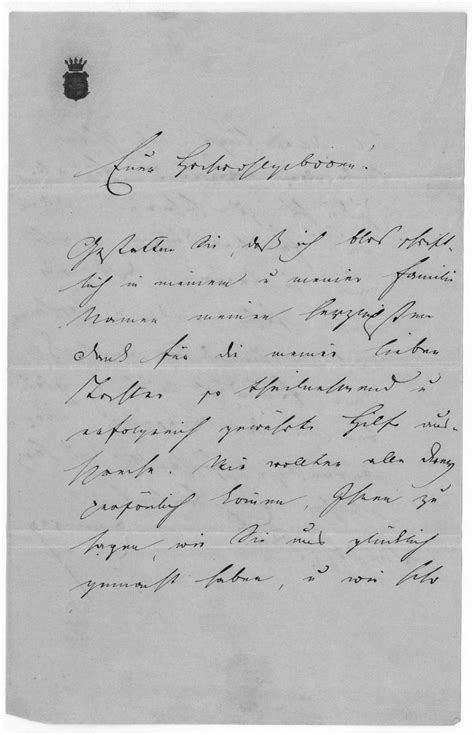 Euer Hochwohlgeboren!
Gestatten Sie, daß ich blos schrift-
lich in meinem u meiner Familie
Namen meinen herzlichsten
Dank für die meiner lieben
Tochter so theilnehmend u
erfolgreich gewährte Hilfe aus-
spreche. Wir wollten alle
persönlich kommen, Ihnen zu
sagen, wie Sie uns glücklich
gemacht haben, u wie sehr